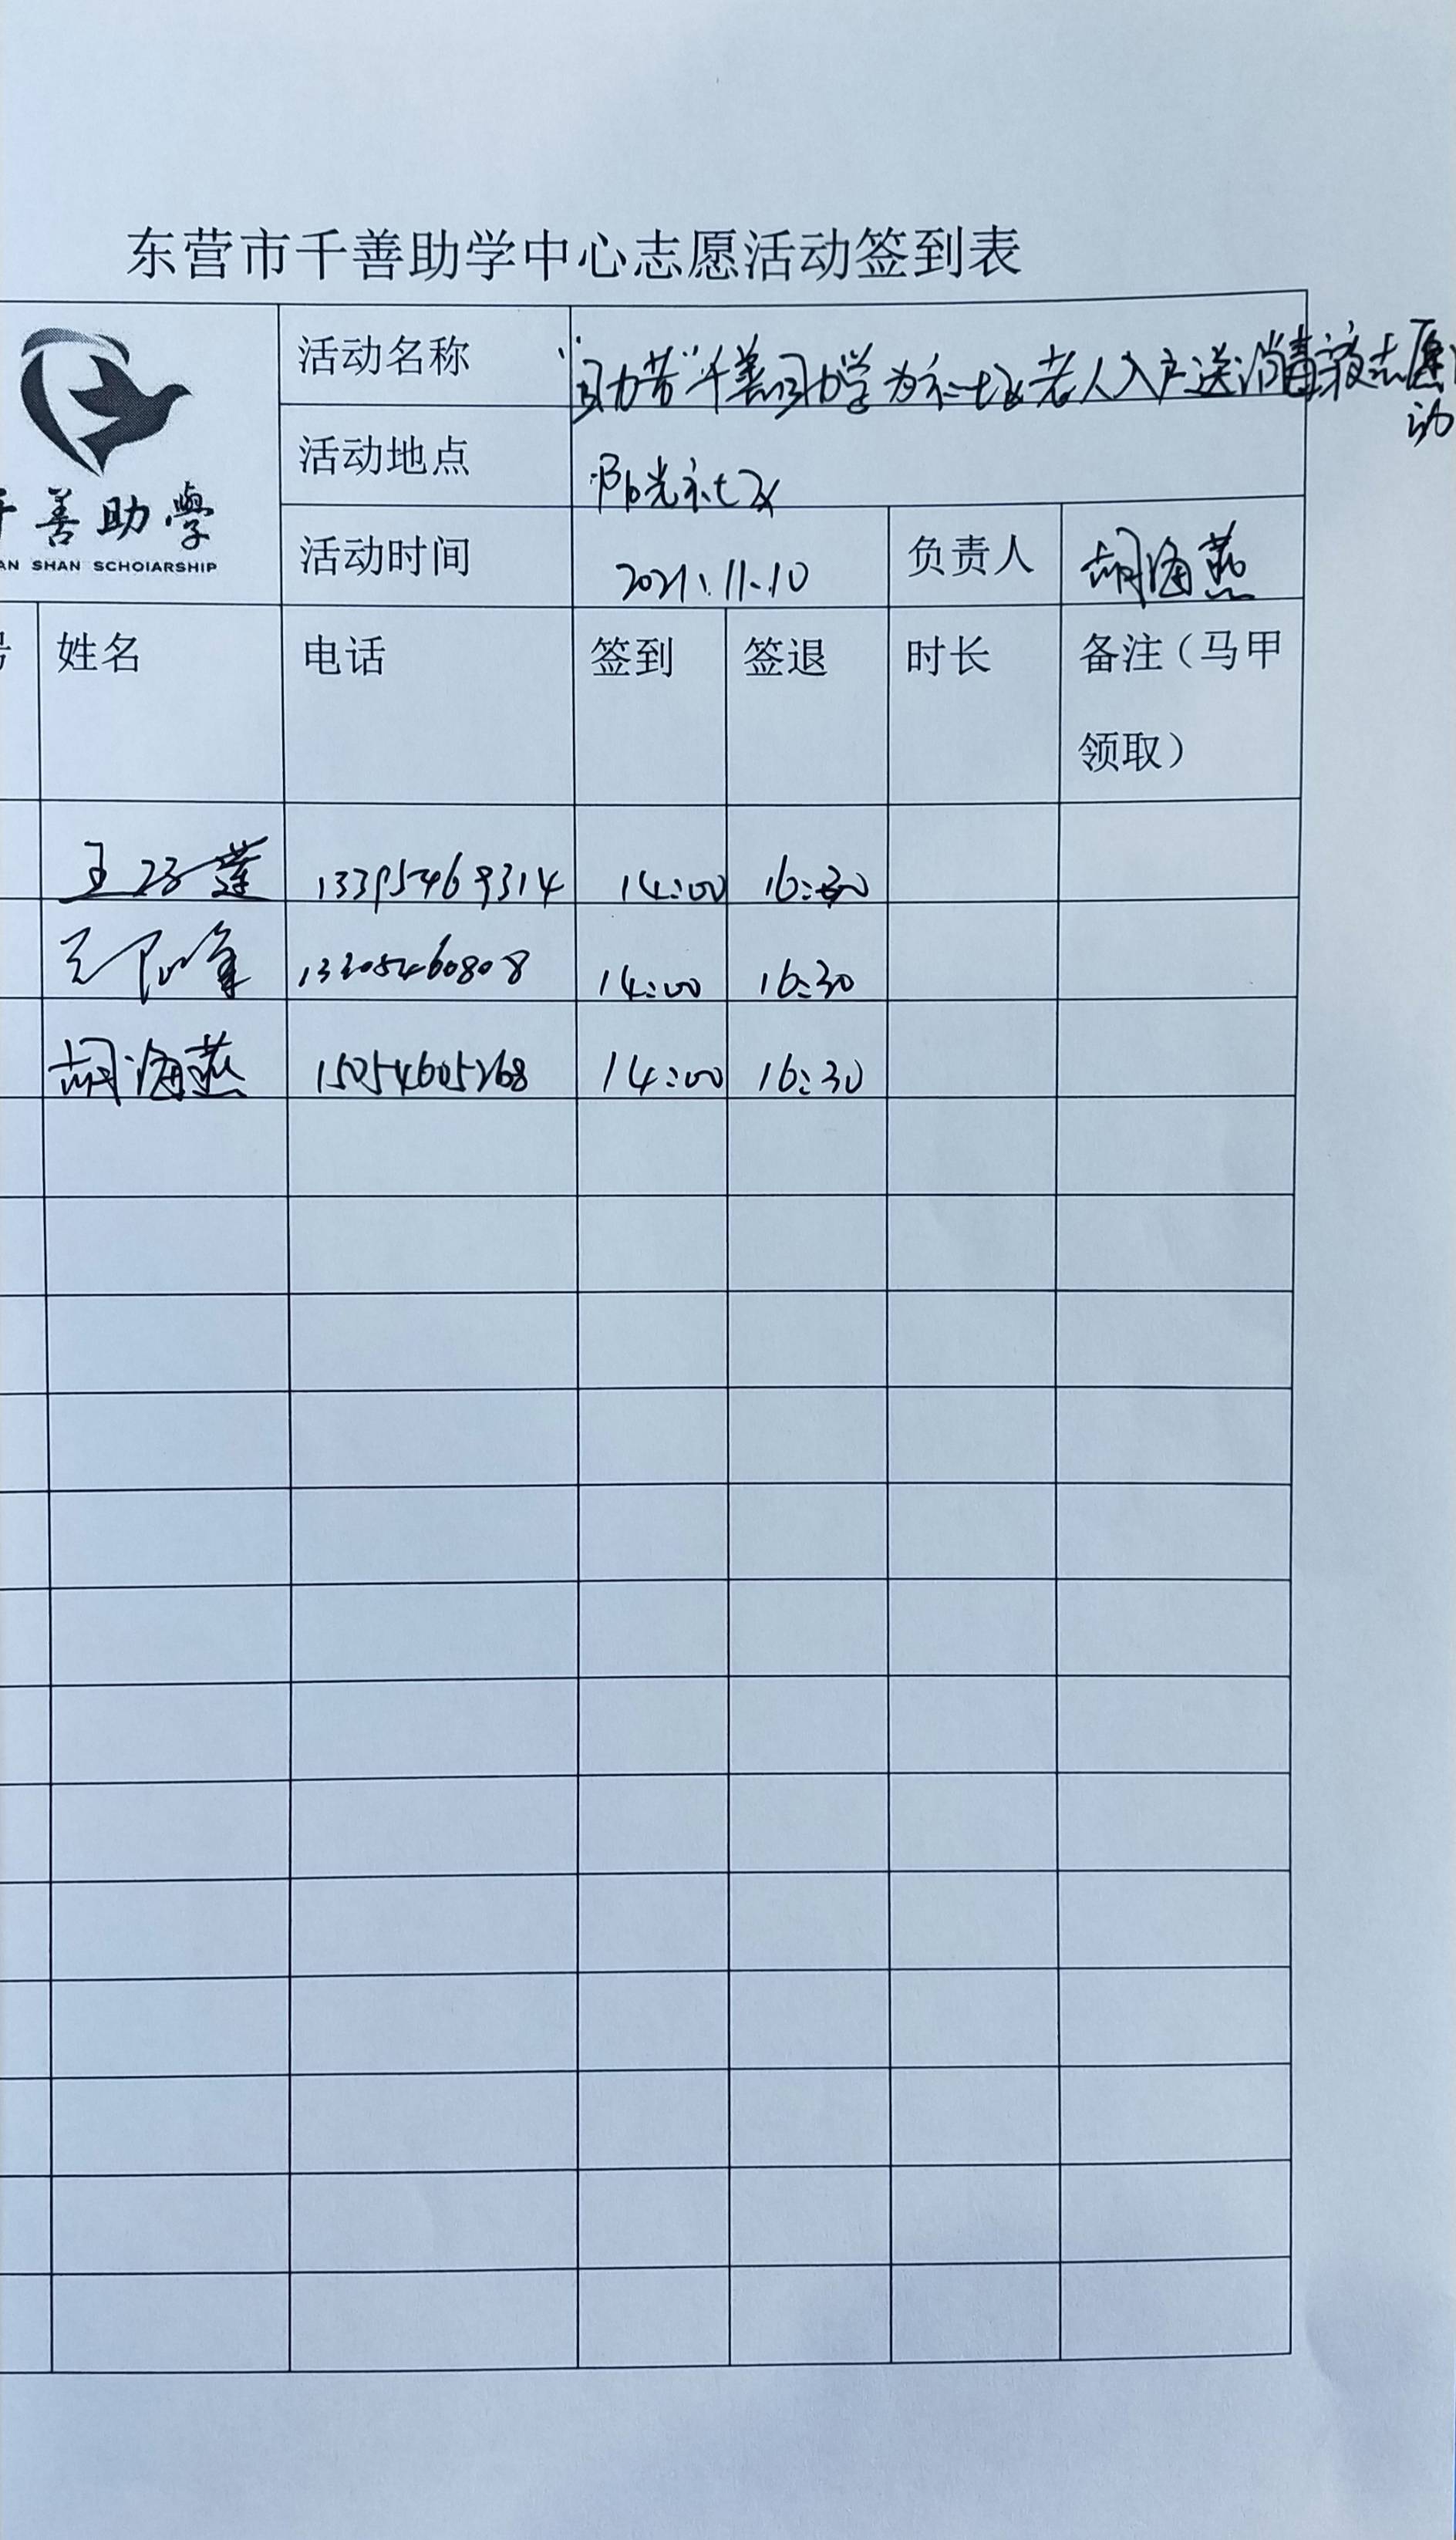 东营市千善助学中心志愿活动签到表
活动名称 "助老"千善助学为社区老人入户送消毒液志愿
动
活动地点 阳光社区
千善助學
AN SHAN SCHOIARSHIP
活动时间 2021.11.10 负责人 胡海燕
号 姓名 电话 签到 签退 时长 备注（马甲
领取）
王 莲 13395469314 14:00 16:30
王 峰 13305460808 14:00 16:30
胡海燕 15054605268 14:00 16:30